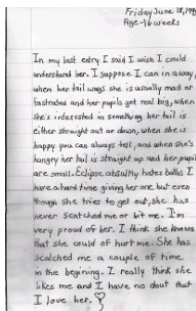 Friday June 18, 19
Age-16 weeks
In my last entry I said I wish I could
understand her. I suppose I can in a way,
when her tail wags she is usually mad or
fustrated and her pupils get real big, when
she's interested in something her tail is
either straight out or down, when she is
happy you can always tell, and when she's
hungry her tail is straight up and her pupils
are small. Eclipse absultly hates baths I
have a hard time giving her one but even
though she tries to get out, she has
never scatched me or bit me. I'm
very proud of her. I think she knows
that she could of hurt me. She has
scatched me a couple of time
in the begining. I really think she
likes me and I have no dout that
I love her.